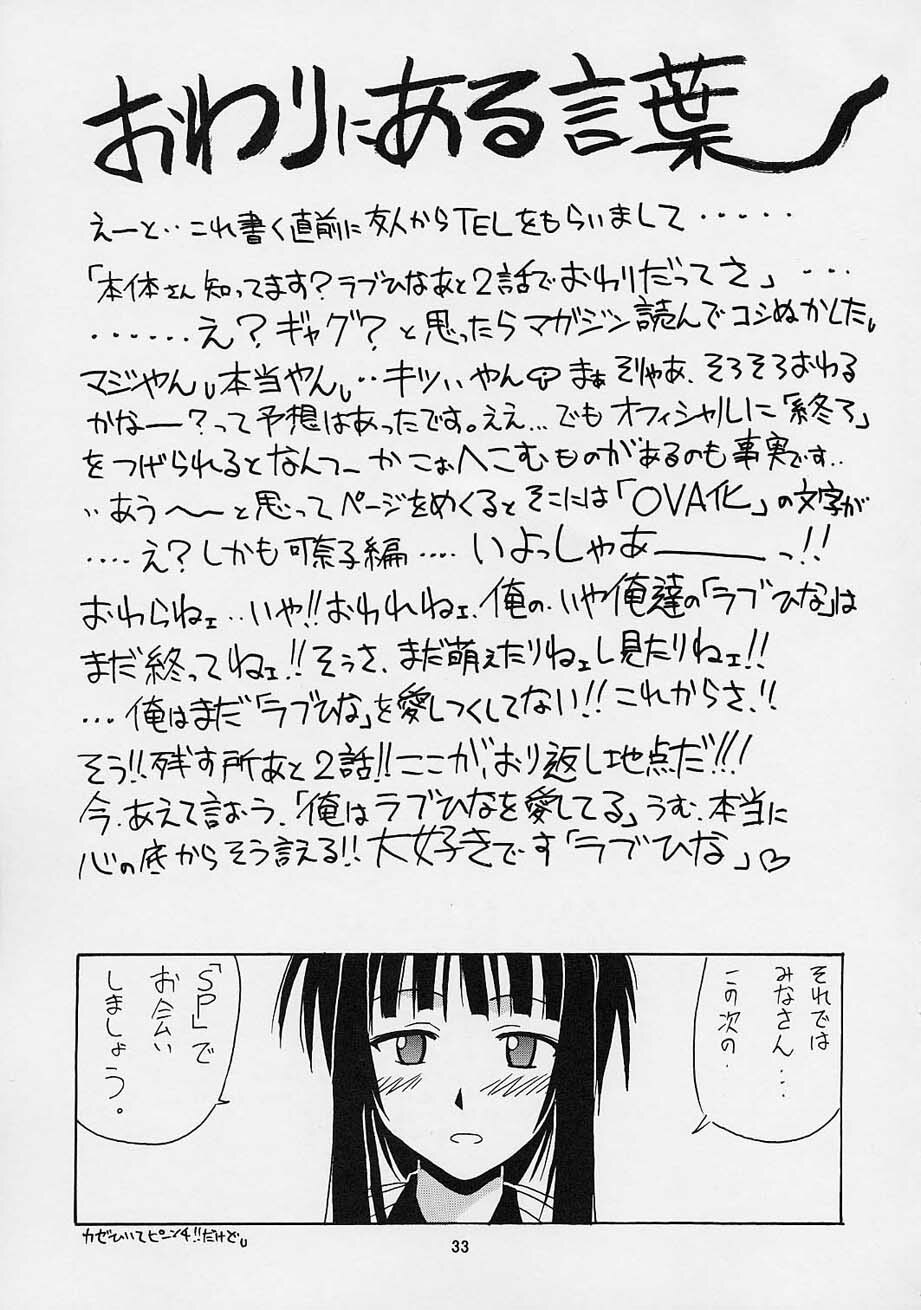 おわりにある言葉
えーと‥これ書く直前に友人からTELをもらいまして・・・・・
「本体さん知ってます?ラブひなあと2話でおわりだってさ」・・・
・・・・・・え?ギャグ?と思ったらマガジン読んでコシぬかした。
マジやん。本当やん。‥キツいやん まぁそりゃあ、そろそろおわる
かなー?って予想はあったです。ええ…でもオフィシャルに「終了」
をつげられるとなんつーかこぉへこむものがあるのも事実です‥
‥あう〜〜と思ってページをめくるとそこには「OVA化」の文字が
・・・・え?しかも可奈子編・・・・いよっしゃあ———っ!!
おわらねェ‥いや!!おわれねェ、俺の、いや俺達の「ラブひな」は
まだ終ってねェ!!そうさ、まだ萌えたりねェし見たりねェ!!
・・・俺はまだ「ラブひな」を愛しつくしてない!!これからさ!!
そう!!残す所あと2話!!ここが、おり返し地点だ!!!
今、あえて言おう、「俺はラブひなを愛してる」うむ、本当に
心の底からそう言える!!大好きです「ラブひな」♡
それでは
みなさん・・・
この次の
「SP」で
お会い
しましょう。
カゼひいてピンチ!!だけど。
33